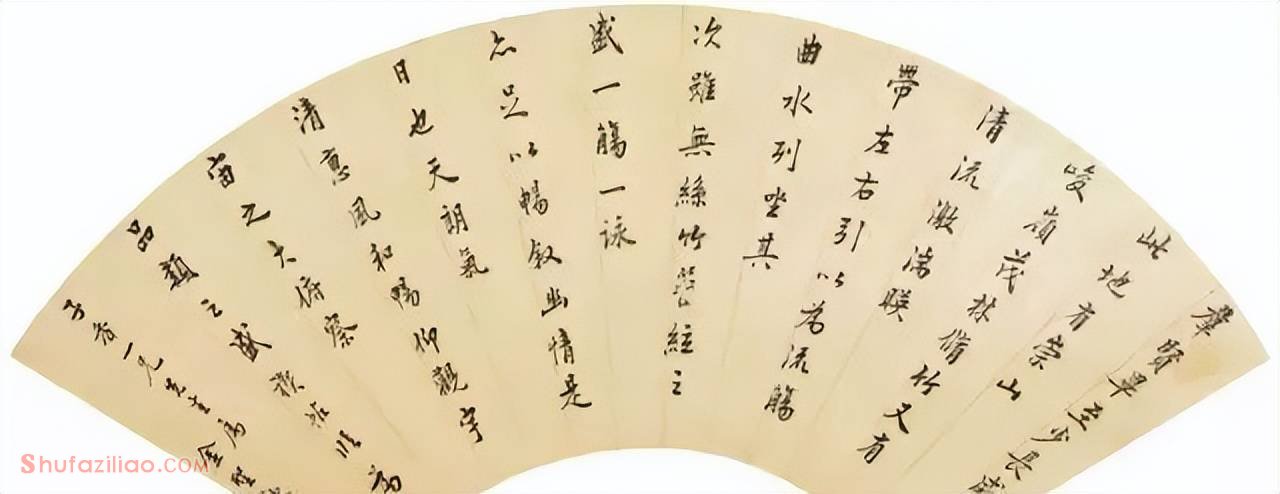 羣賢畢至少長咸
此地有崇山
峻嶺茂林脩竹又有
清流激湍暎
帶左右引以為流觴
曲水列坐其
次雖無絲竹管絃之
盛一觴一詠
亦足以暢敘幽情是
日也天朗氣
清惠風和暢仰觀宇
宙之大俯察
品類之盛禊帖臨為
子香一兄先生屬金
Shufaziliao.com